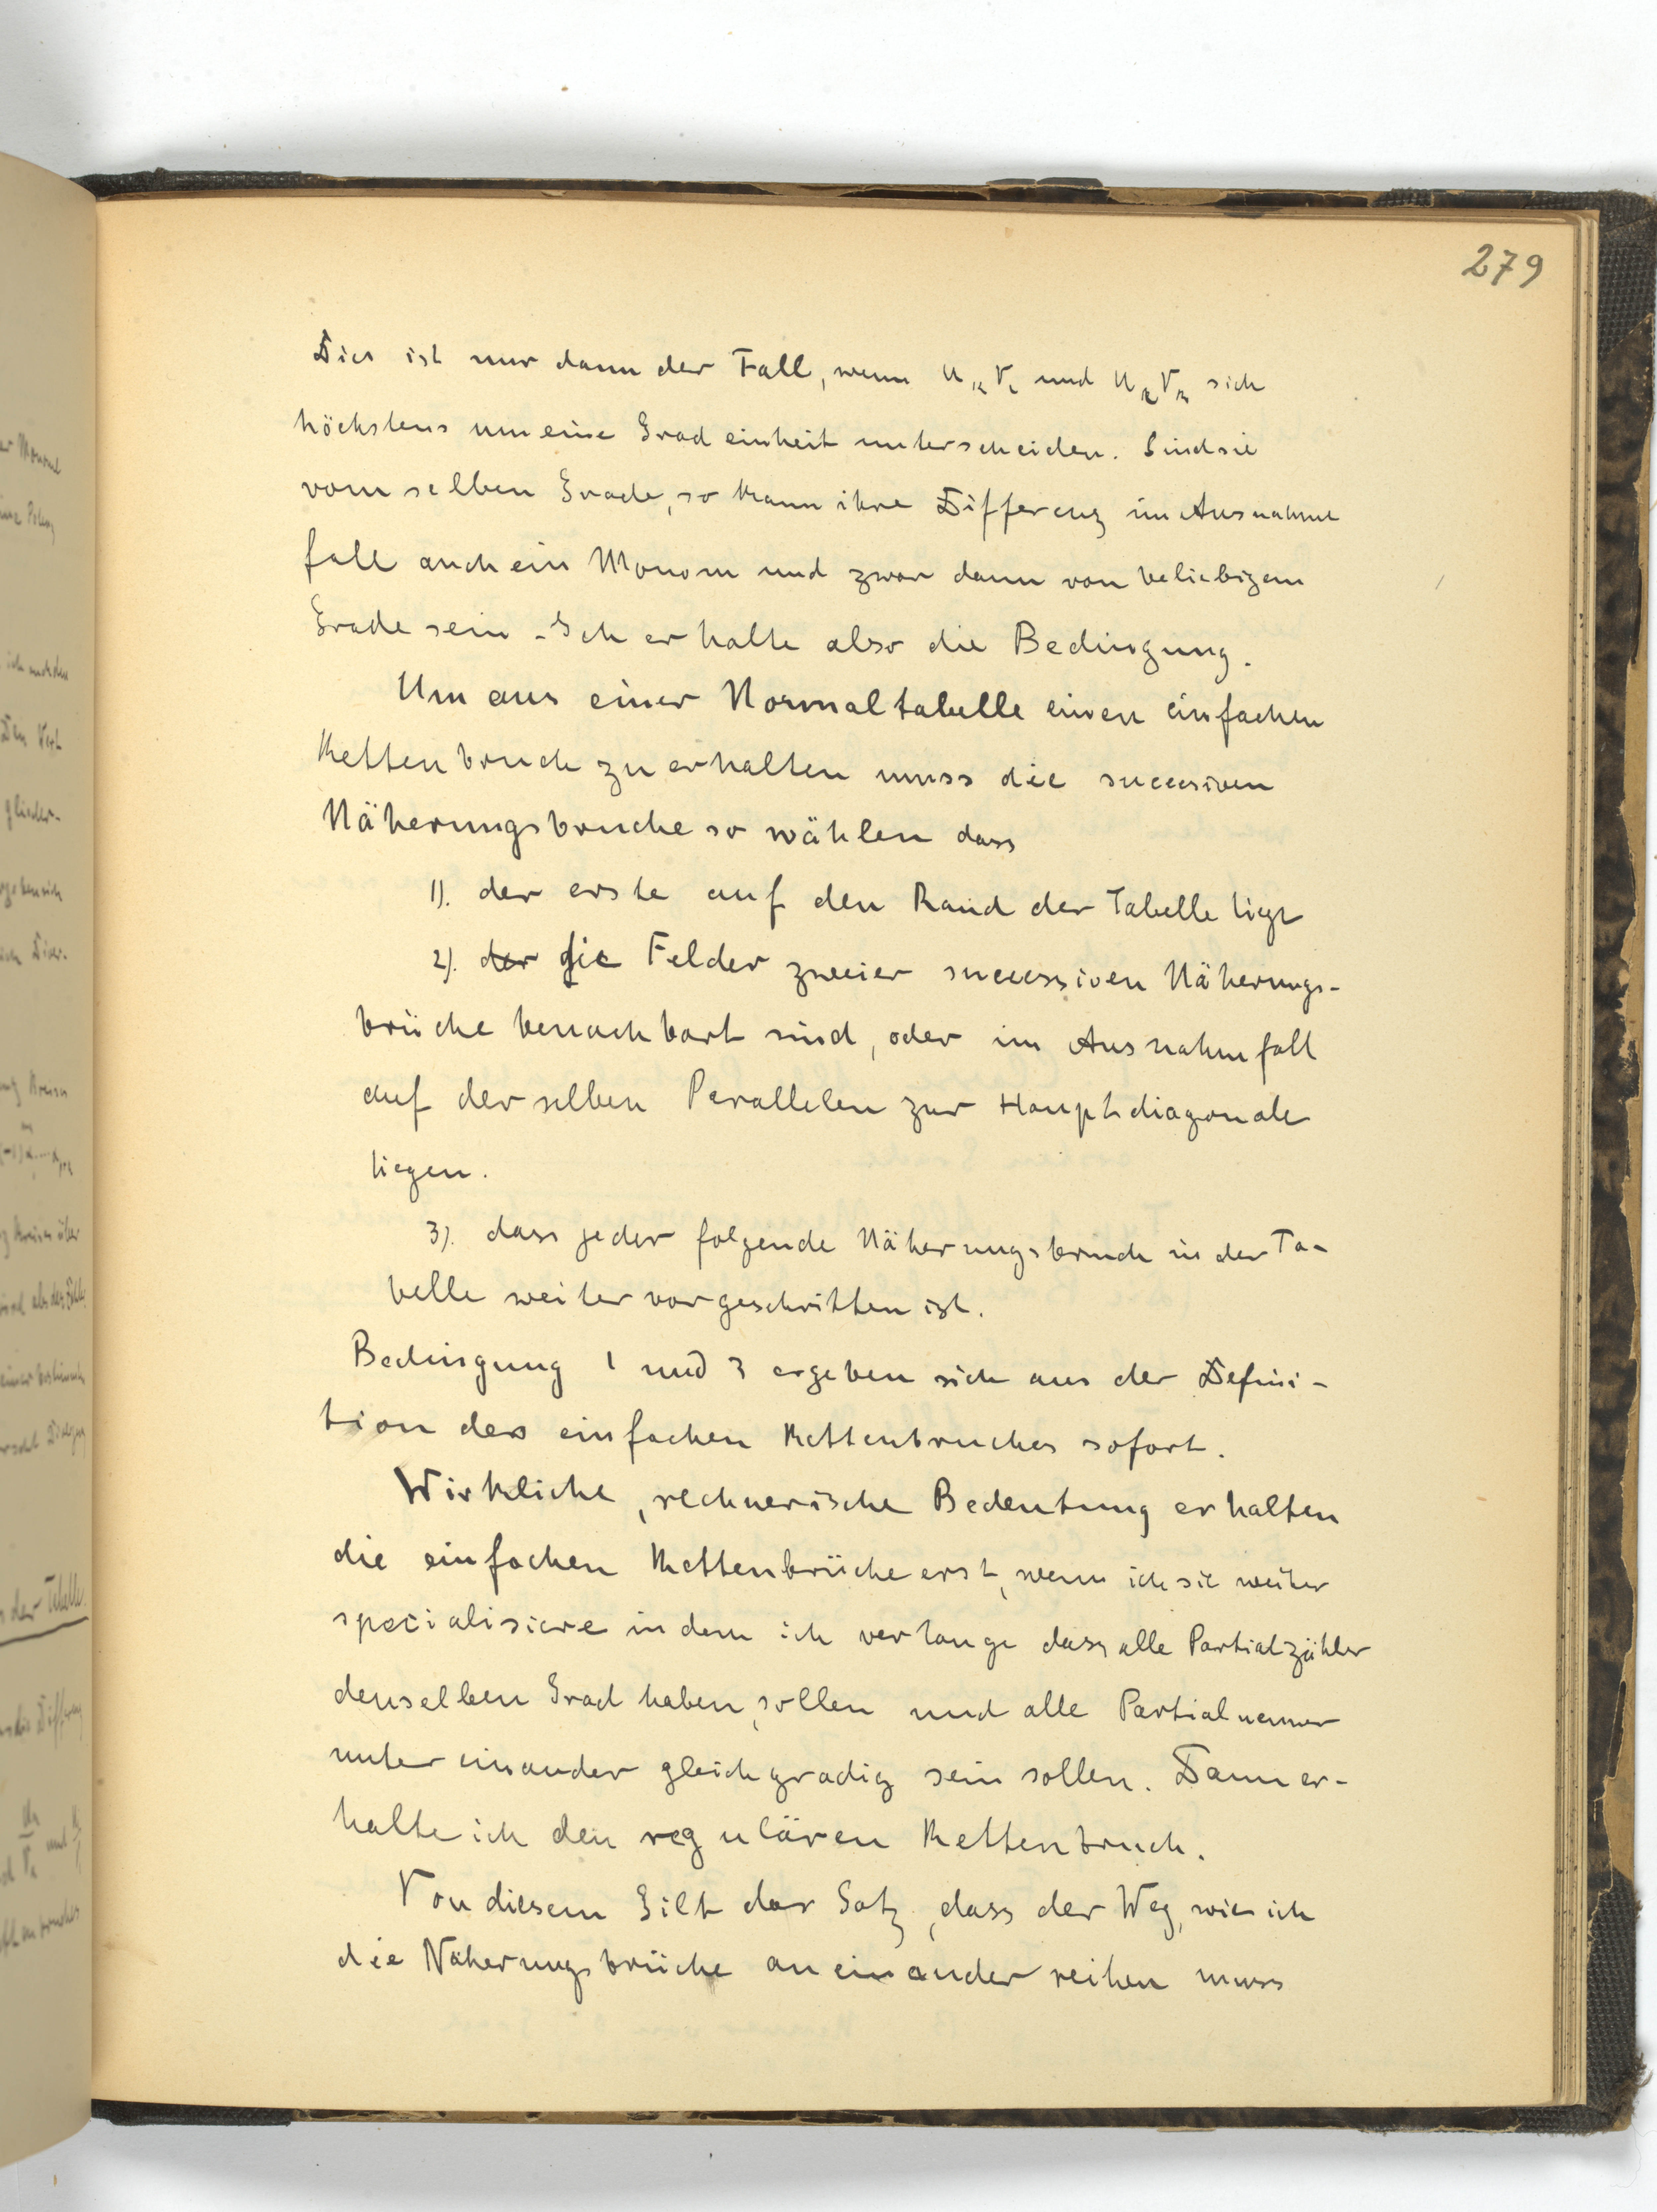 279
Dies ist nur dann der Fall, wenn U V und U V sich
höchstens um eine Grad einheit unterscheiden. Sind sie
vom selben Grade, so kann ihre Differenz im Ausnahme
fall auch ein Monom und zwar dann von beliebigem
Grade sein - Ich erhalte also die Bedingung.
Um aus einer Normaltabelle einen einfachen
Kettenbruch zu erhalten muss die succesiven
Näherungsbruche so wählen dass
1). der erste auf den Rand der Tabelle liegt
2). der die Felder zweier successiven Näherungs-
brüche benachbart sind, oder im Ausnahmfall
auf derselben Parallelen zur Hauptdiagonale
liegen.
3). dass jeder folgende Näherungsbruch in der Ta-
belle weiter vorgeschritten ist.
Bedingung 1 und 3 ergeben sich aus der Defini-
tion des einfachen Kettenbruches sofort.
Wirkliche, rechnerische Bedeutung erhalten
die einfachen Kettenbrüche erst, wenn ich sie weiter
specialisiere indem ich verlange dass alle Partialzähler
denselben Grad haben, sollen und alle Partialnenner
unter einander gleichgradig sein sollen. Dann er-
halte ich den regulären Kettenbruch.
Von diesem Gilt der Satz, dass der Weg, wie ich
die Näherungsbrüche an einander reihen muss